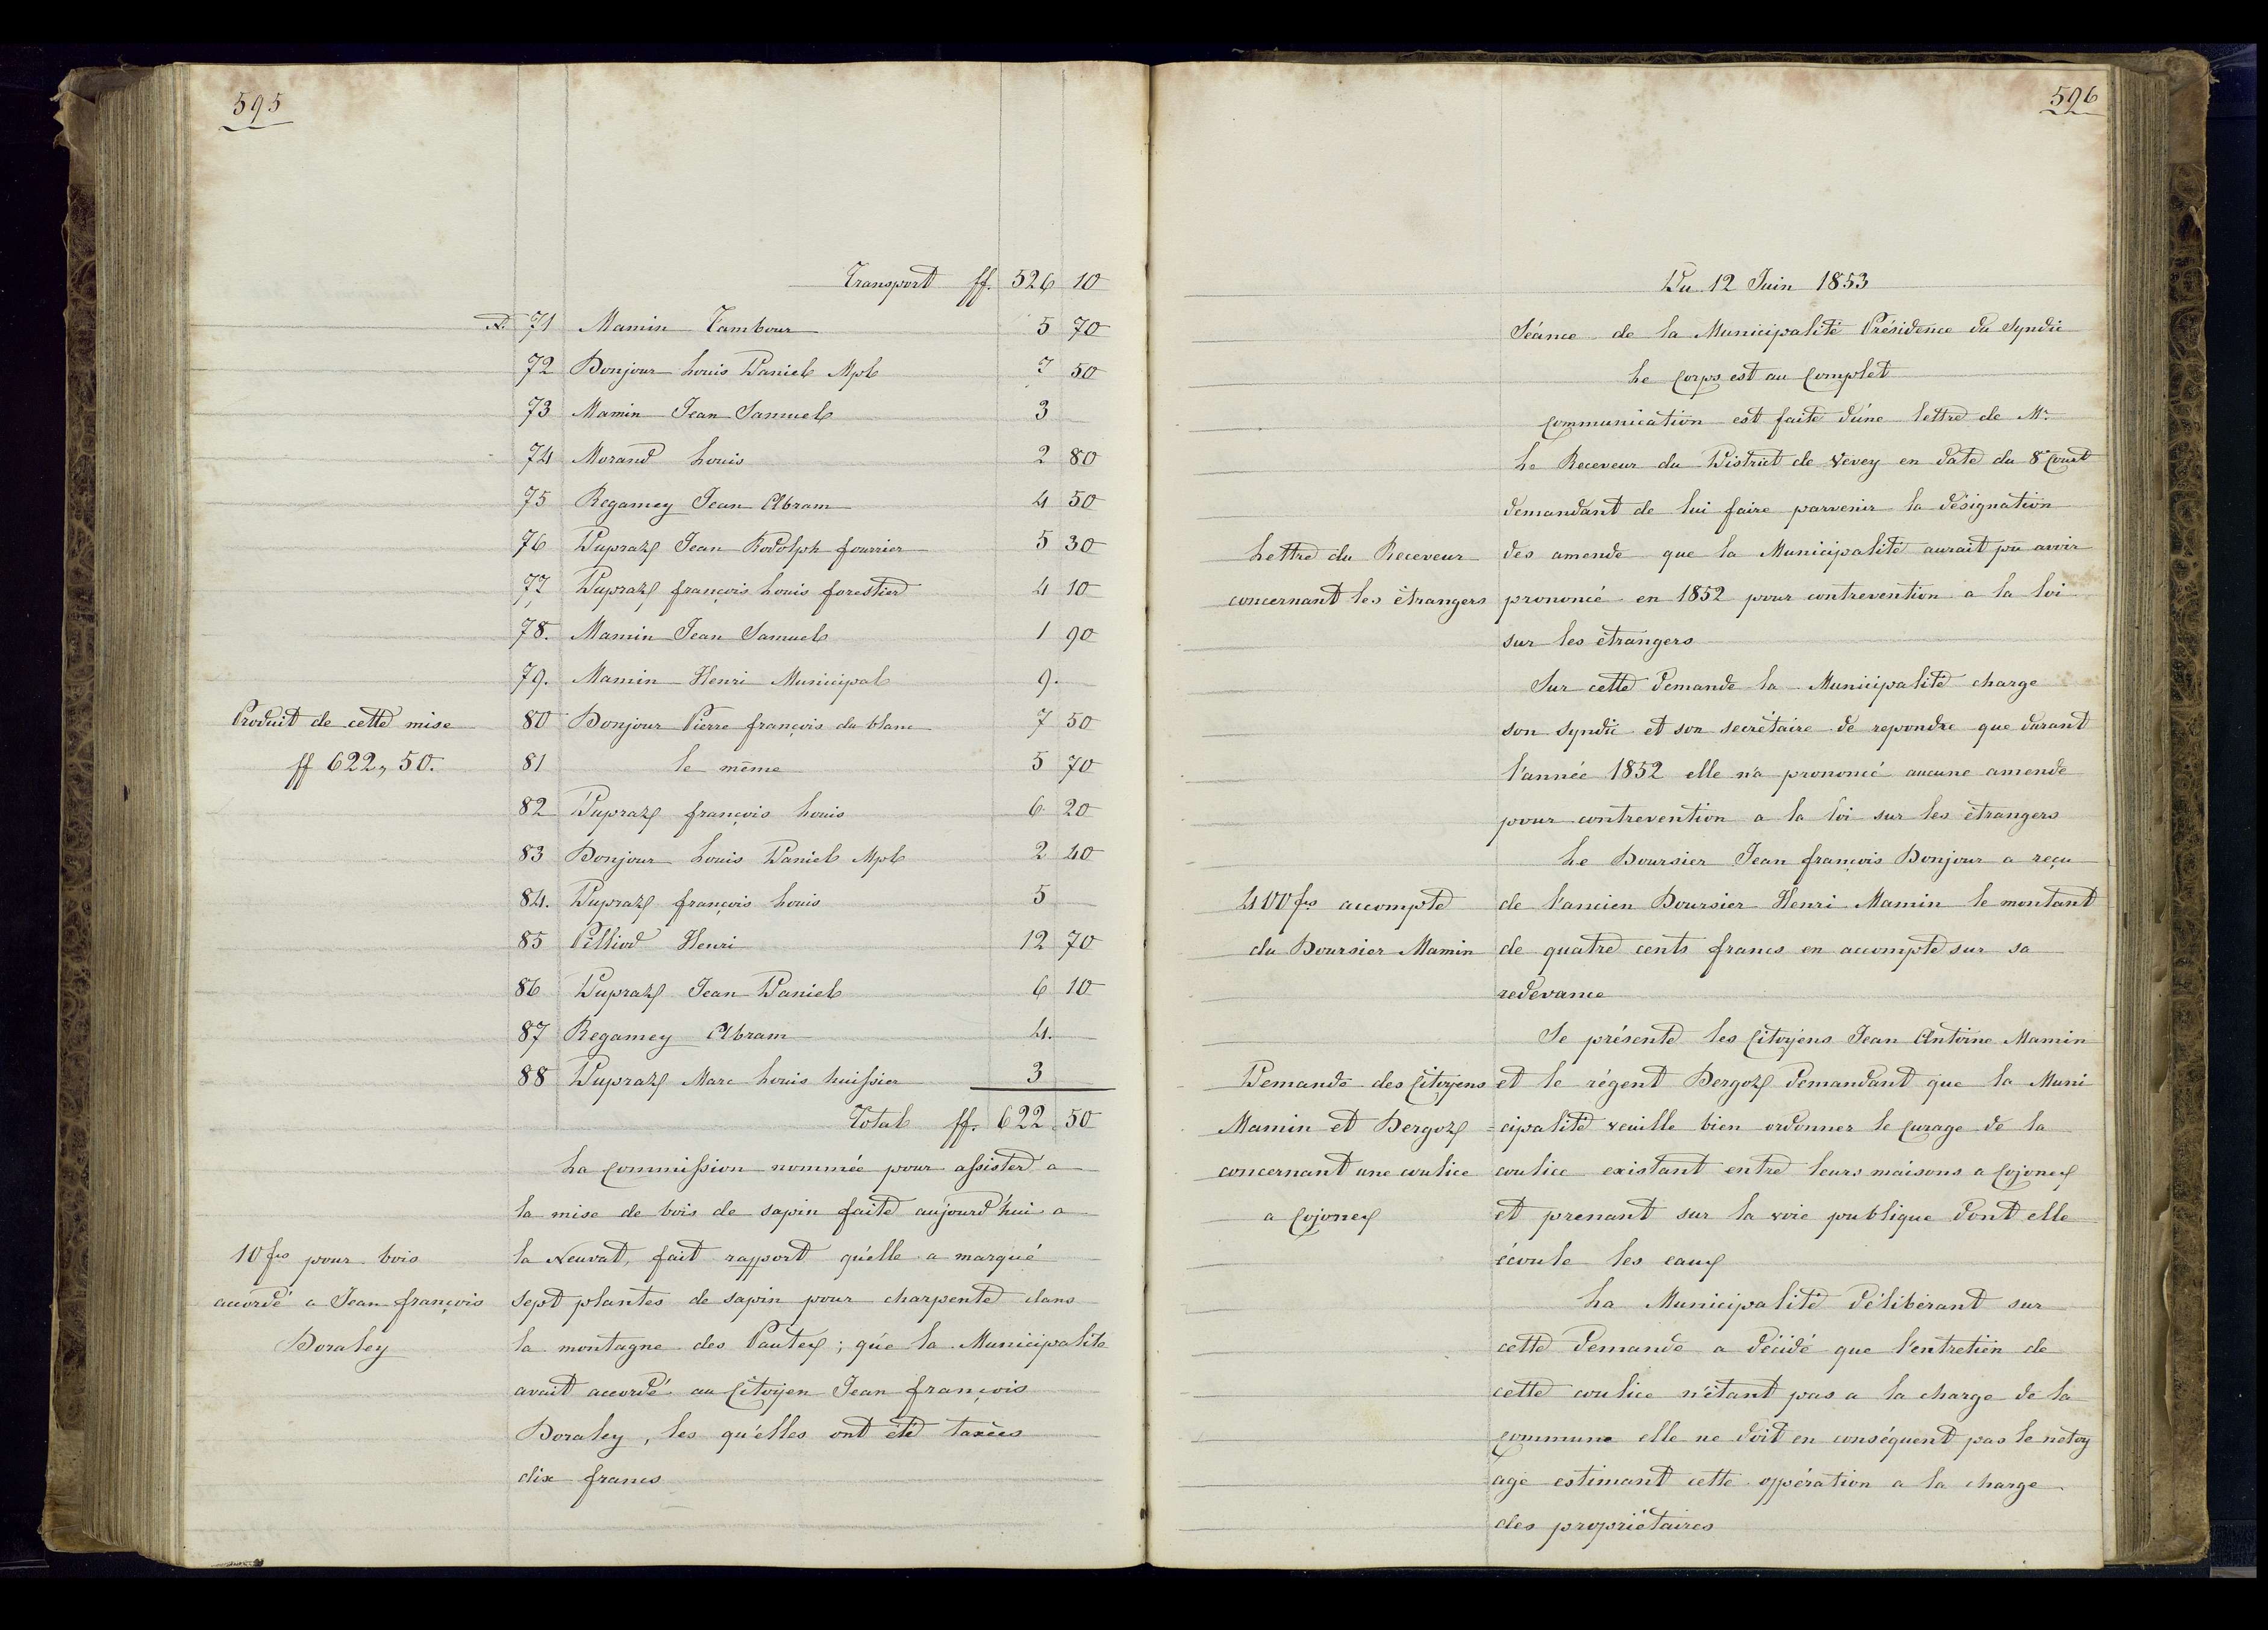 595
Transport ff. 526 10
N. 71 Mamin Tambour 5 70
72 Bonjour Louis Daniel Mpl 7 50
73 Mamin Jean Samuel 3
74 Morand Louis 2 80
75 Regamey Jean Abram 4 50
76 Dupraz Jean Rodolph fourrier 5 30
77 Dupraz françois Louis forestier 4 10
78. Mamin Jean Samuel 1 90
79. Mamin Henri Municipal 9.
Produit de cette mise
ff 622,, 50.
80 Bonjour Pierre françois du blanc 7 50
81 le même 5 70
82 Dupraz françois Louis 6 20
83 Bonjour Louis Daniel Mpl 2 40
84. Dupraz françois Louis 5
85 Pilliod Henri 12 70
86 Dupraz Jean Daniel 6 10
87 Regamey Abram 4.
88 Dupraz Marc Louis huissier 3
Total ff. 622 50
La Commission nommée pour assister a
la mise de bois de sapin faite aujourd'hui a
10 frs pour bois
accordé a Jean françois
Boraley
la Neuvat, fait rapport qu'elle a marqué
sept plantes de sapin pour charpente dans
la montagne des Pautex ; que la Municipalite
avait accordé au Citoyen Jean françois
Boraley, les qu'elles ont été taxées
dix francs
596
Du 12 Juin 1853
Séance de la Municipalité Présidence du Syndic
Le Corps est au Complet
Communication est faite d'une lettre de Mr.
Le Receveur du District de Vevey en date du 8e Court
demandant de lui faire parvenir la désignation
Lettre du Receveur
concernant les étrangers
des amende que la Municipalité aurait pu avoir
prononcé en 1852 pour contrevention a la loi
sur les étrangers
Sur cette demande la Municipalité charge
son syndic et son secrétaire de repondre que durant
l'année 1852 elle n'a prononcé aucune amende
pour contrevention a la loi sur les étrangers
Le Boursier Jean françois Bonjour a reçu
400 frs accompte
du Boursier Mamin
de l'ancien Boursier Henri Mamin le montant
de quatre cents francs en accompte sur sa
redevance
Se présente les Citoyens Jean Antoine Mamin
Demande des Citoyens
Mamin et Bergoz
concernant une coulice
a Cojonex
et le régent Bergoz demandant que la Muni
=cipalité veuille bien ordonner le Curage de la
coulice existant entre leurs maisons a Cojonex
et prenant sur la voie publique dont elle
écoule les eaux
La Municipalité délibérant sur
cette demande a décidé que l'entretien de
cette coulice n'étant pas a la charge de la
Commune elle ne doit en conséquent pas le netoy
age estimant cette oppération a la charge
des propriétaires